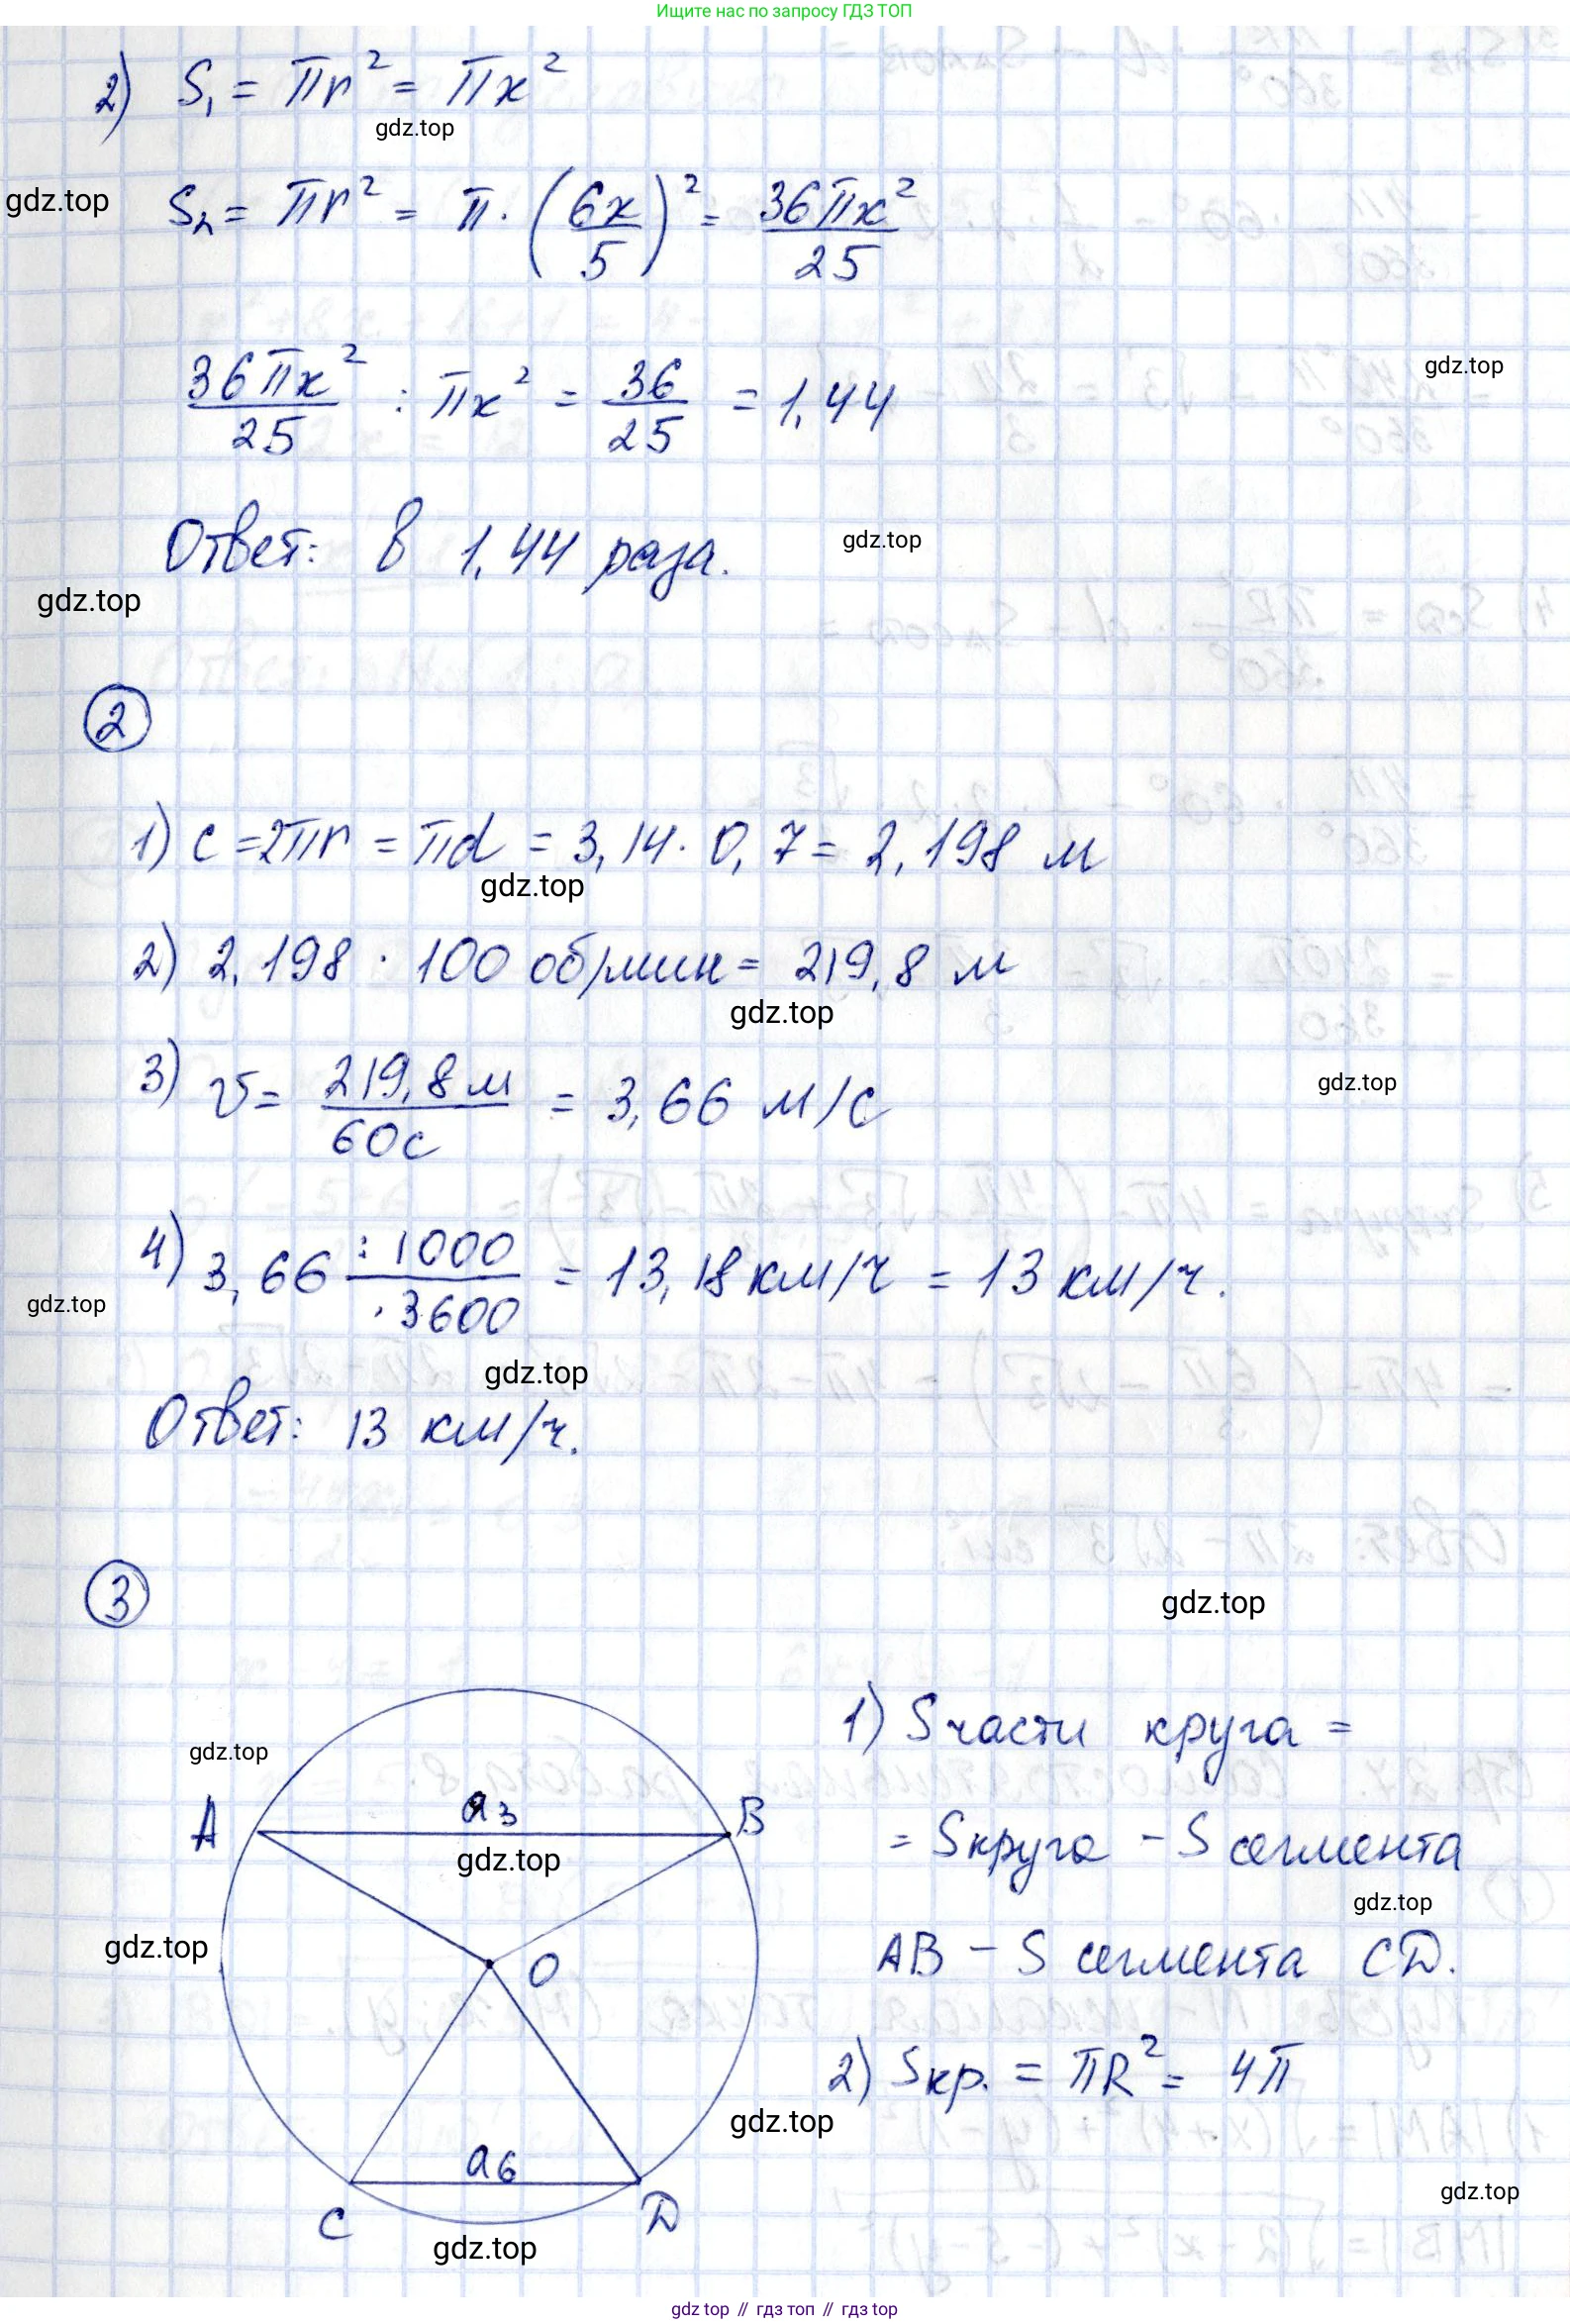 Ищите нас по запросу ГДЗ ТОП
2) S₁ = πr² = πx²
gdz.top
gdz.top
S₂ = πr² = π · (6x/5)² = 36πx²/25
36πx²/25 : πx² = 36/25 = 1,44
gdz.top
Ответ: в 1,44 раза.
gdz.top
gdz.top
2
1) c = 2πr = πd = 3,14 · 0,7 = 2,198 м
gdz.top
2) 2,198 · 100 об/мин = 219,8 м
gdz.top
3) v = 219,8 м/60 с = 3,66 м/с
gdz.top
4) 3,66 : 1000/· 3600 = 13,18 км/ч = 13 км/ч.
gdz.top
gdz.top
Ответ: 13 км/ч.
3
gdz.top
1) S части круга =
gdz.top
a₃
A
B
= S круга - S сегмента
gdz.top
gdz.top
gdz.top
AB - S сегмента CD.
O
2) Sкр. = πR² = 4π
gdz.top
a₆
gdz.top
C
D
gdz.top
gdz top // гдз топ // гдз top